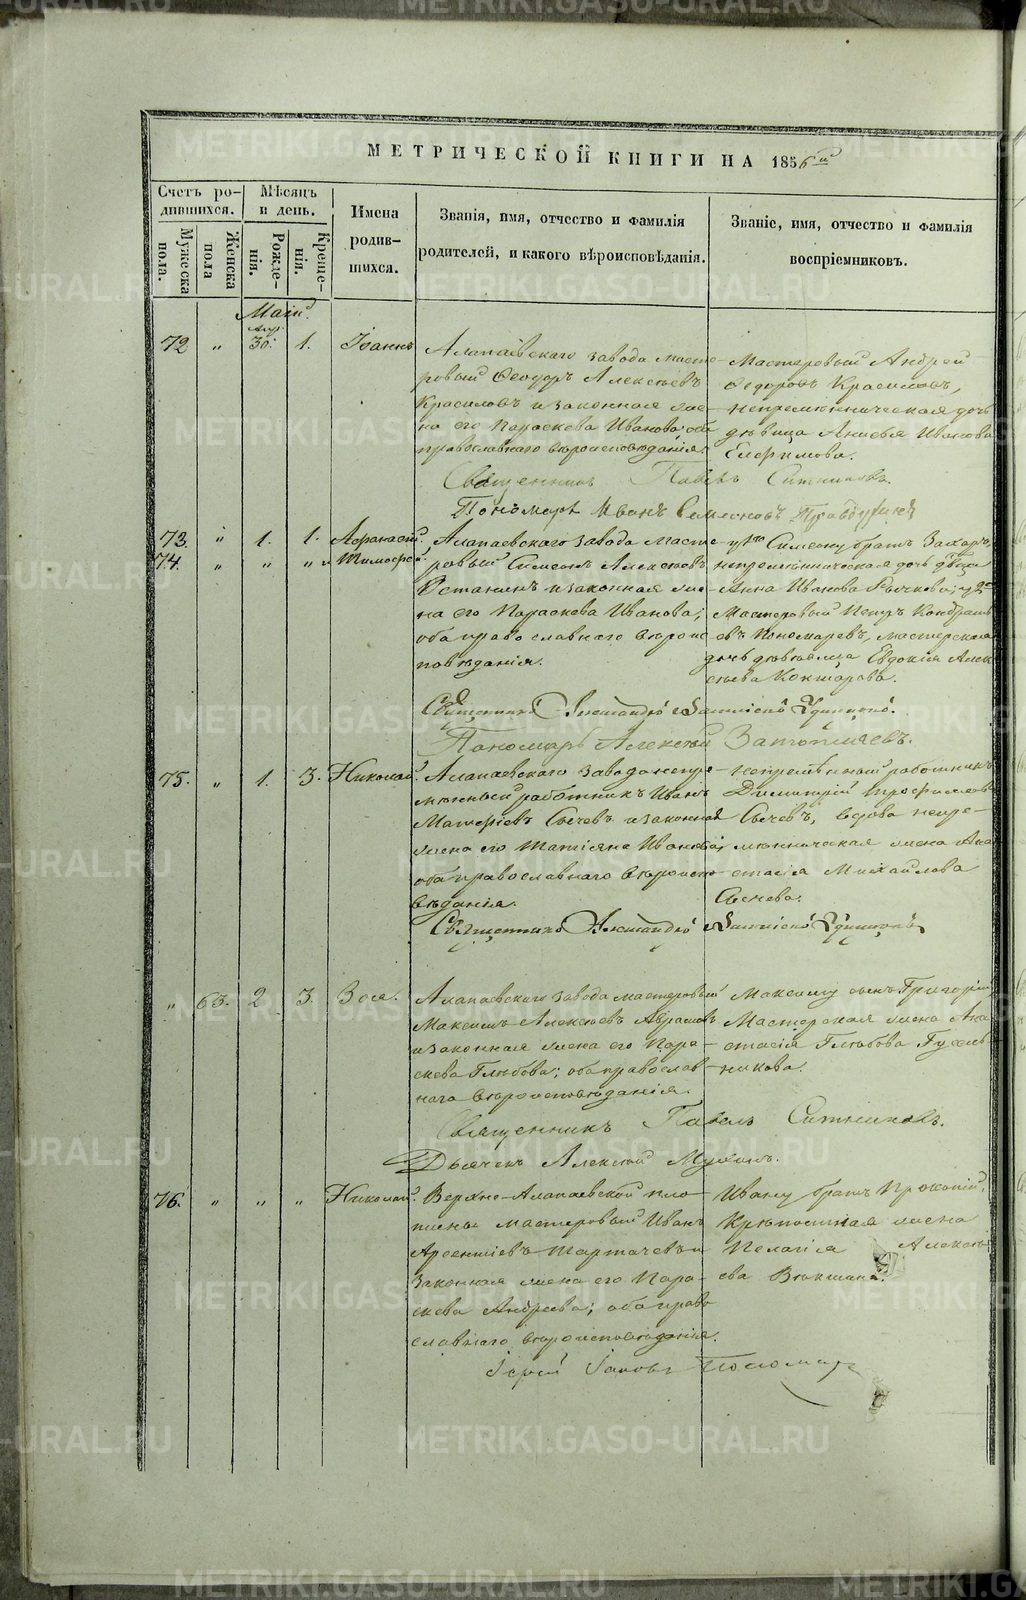 МЕТРИЧЕСКОЙ КНИГИ НА 1856й
Счетъ родившихся.
Мужеска пола.
Женска пола
Мѣсяцъ и день.
Рожденія.
Крещенія.
Имена родившихся.
Званія, имя, отчество и фамилія родителей, и какого вѣроисповѣданія.
Званіе, имя, отчество и фамилія воспріемниковъ.
Маій
72 „ Апр. 30. 1. Іоаннъ
Алапаевскаго завода масте-
ровый Ѳеодоръ Алексѣевъ
Красиловъ и законная же-
на его Параскева Иванова; оба
православнаго вѣроисповѣданія.
Мастеровый Андрей
Ѳедоровъ Красиловъ,
непремѣнническая дочь
дѣвица Анисья Иванова
Ефимова.
Священникъ Павелъ Ситниковъ.
Пономарь Иванъ
73. „ 1. 1. Афанасій
74. „ „ „ Тимофей
Алапаевскаго завода масте-
ровый Симеонъ Алексѣевъ
Останинъ и законная же-
на его Параскева Иванова;
оба православнаго вѣроис-
повѣданія.
у 1го Симеону братъ Захаръ,
непремѣнническая дочь дѣвица
Анна Иванова у 2го
Мастеровый Петръ Кондрать-
евъ Пономаревъ, мастерская
дочь дѣвица Евдокія Алек-
сѣева Кокшарова.
Священникъ Александръ Удинцовъ.
Пономарь Алексѣй Затопляевъ.
75. „ 1. 3. Николай.
Алапаевскаго завода непре-
мѣнный работникъ Иванъ
Матвѣевъ Сычевъ и законная
жена его Татіяна Иванова;
оба православнаго вѣроиспо-
вѣданія.
непремѣнный работникъ
Димитрій Трофимовъ
Сычевъ, вдова непре-
мѣнническая жена Ана-
стасія Михайлова
Сычева.
Священникъ Александръ Удинцовъ
„ 63. 2. 3. Зоя.
Алапаевскаго завода мастеровый
Максимъ Алексѣевъ Абрамовъ
и законная жена его Пара-
скева Глѣбова; оба православ-
наго вѣроисповѣданія.
Максиму сынъ Григорій,
Мастерская жена Ана-
стасія Глѣбова Гусель-
никова.
Священникъ Павелъ Ситниковъ.
Дьячекъ Алексѣй
76. „ „ „ Николай.
Верхне-Алапаевской пло-
тины мастеровый Иванъ
Арсентіевъ Тартачевъ и
законная жена его Пара-
скева Андреева; оба право-
славнаго вѣроисповѣданія.
Ивану братъ Прокопій,
Крѣпостная жена
Пелагія Алексѣ-
ева
Іерей Іаковъ
METRIKI.GASO-URAL.RU